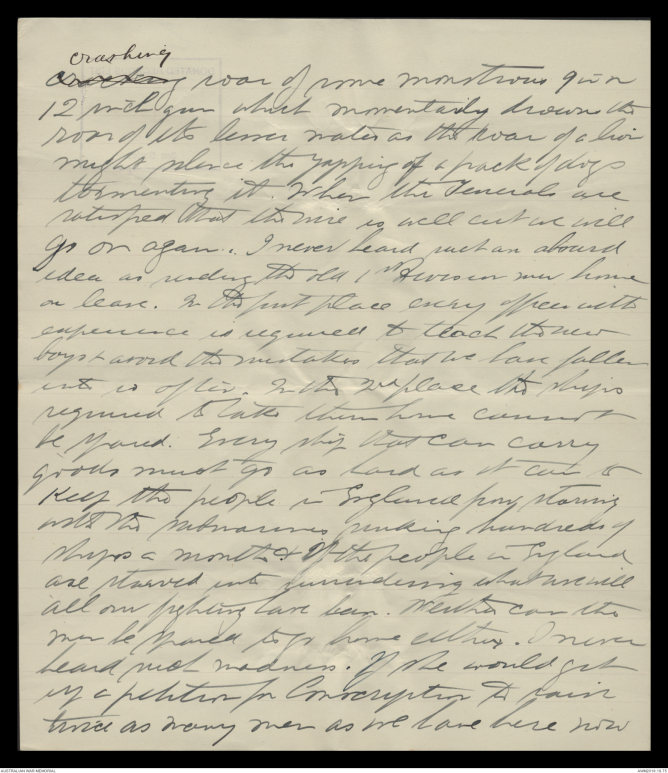 crashing
roar of some monstrous 9 in or
12 inch gun which momentarily drowns the
roar of its lesser mates as the roar of a lion
might silence the yapping of a pack of dogs
tormenting it. When the Generals are
satisfied that the wire is well cut we will
go on again. I never heard such an absurd
idea as sending the old 1st Division men home
on leave. In the first place every officer with
experience is required to teach the new
boys & avoid the mistakes that we have fallen
into so often. In the 2nd place the ships
required to take them home cannot
be spared. Every ship that can carry
goods must go as hard as it can to
keep the people in England from starving
with the submarines sinking hundreds of
ships a month & if the people in England
are starved into surrendering what use will
all our fighting have been. Neither can the
men be spared to go home either. I never
heard such madness. If she would get
up a petition for Conscription to raise
twice as many men as we have here now
AUSTRALIAN WAR MEMORIAL